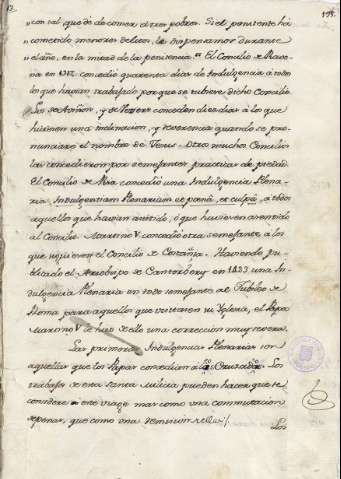 " con tal que dé de comer á tres pobres. Si el penitente há
" cometido menores delitos, le dispensamos durante
" el año, en la mitad de la penitencia." El Concilio de Rave-
na en concedio quarenta dias de Indulgencia á todos
los que havian trabajado por que se tubiese dicho Concilio
Los de Aviñon, y de conceden diez dias á los que
hiciesen una inclinacion, y reverencia quando se pro-
nunciare el nombre de Jesus. Otros muchos Concilios
las concedieron por semejantes practicas de piedad.
El Concilio de Pisa concedió una Indulgencia Plena-
ria, Indulgentiam Plenariam et poenâ, et culpâ, á todos
aquellos que havian asistido, ó que huviesen asentido
al Concilio. Martino V concedió otra semejante á los
que asistieron el Concilio de Constanza. Haviendo pu-
blicado el Arzobispo de Cantorbery en 1423 una In-
dulgencia Plenaria en todo semejante al Jubileo de
Roma para aquellos que visitasen su Yglesia, el Papa
Martino V le hizo sobre ello una correccion muy severa.
Las primeras Indulgencias Plenarias son
aquellas que los Papas concedian á los Cruzados. Los
trabajos de esta santa milicia pueden hacer que se
considere este viage mas como una commutacion
de penas, que como una
Los